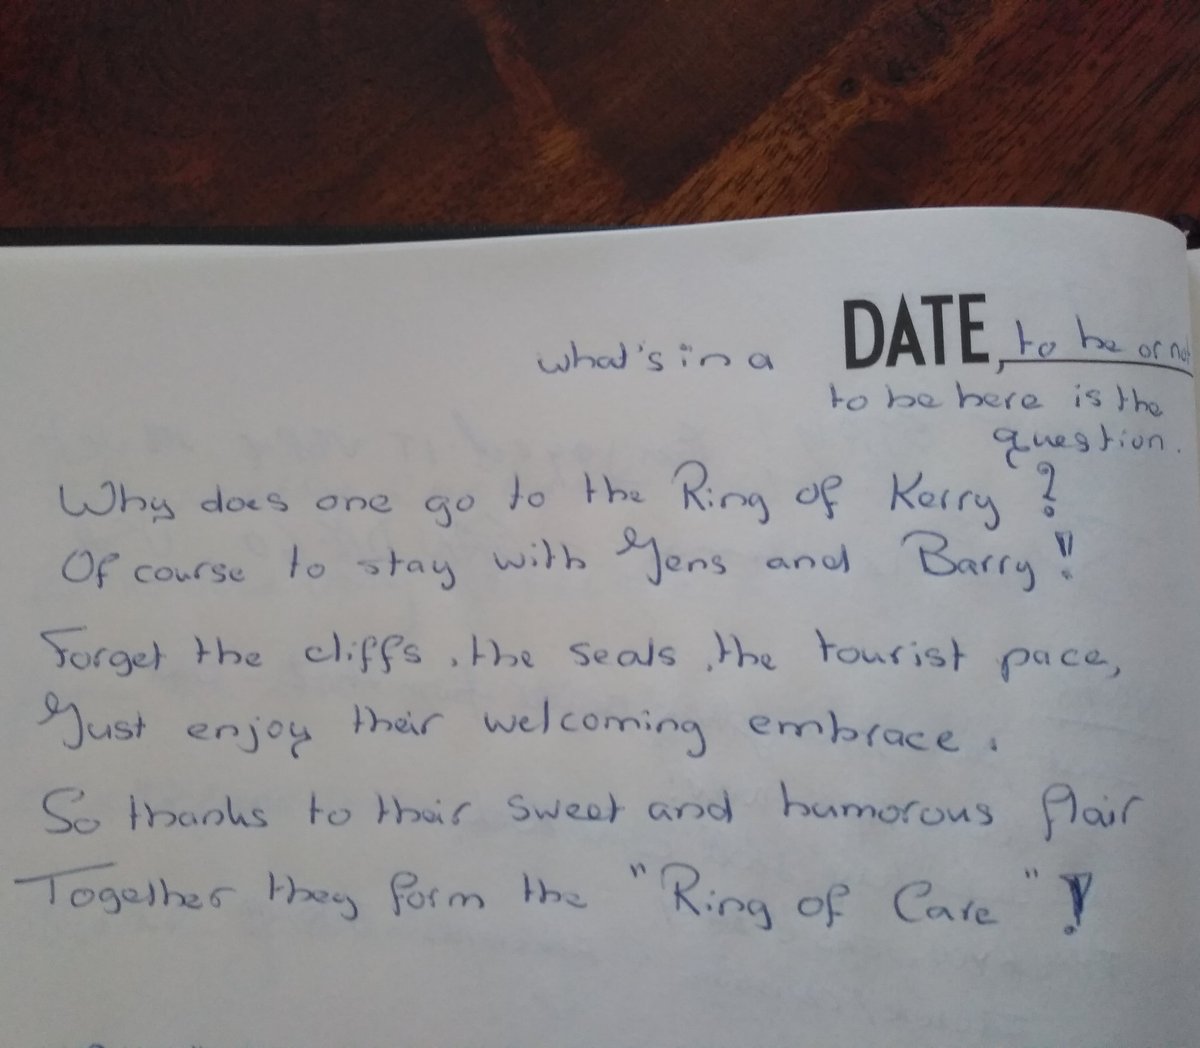 what's in a DATE, to be or not
to be here is the
question.
Why does one go to the Ring of Kerry?
Of course to stay with Jens and Barry!!
Forget the cliffs, the seals, the tourist pace,
Just enjoy their welcoming embrace.
So thanks to their sweet and humorous flair
Together they form the "Ring of Care"!